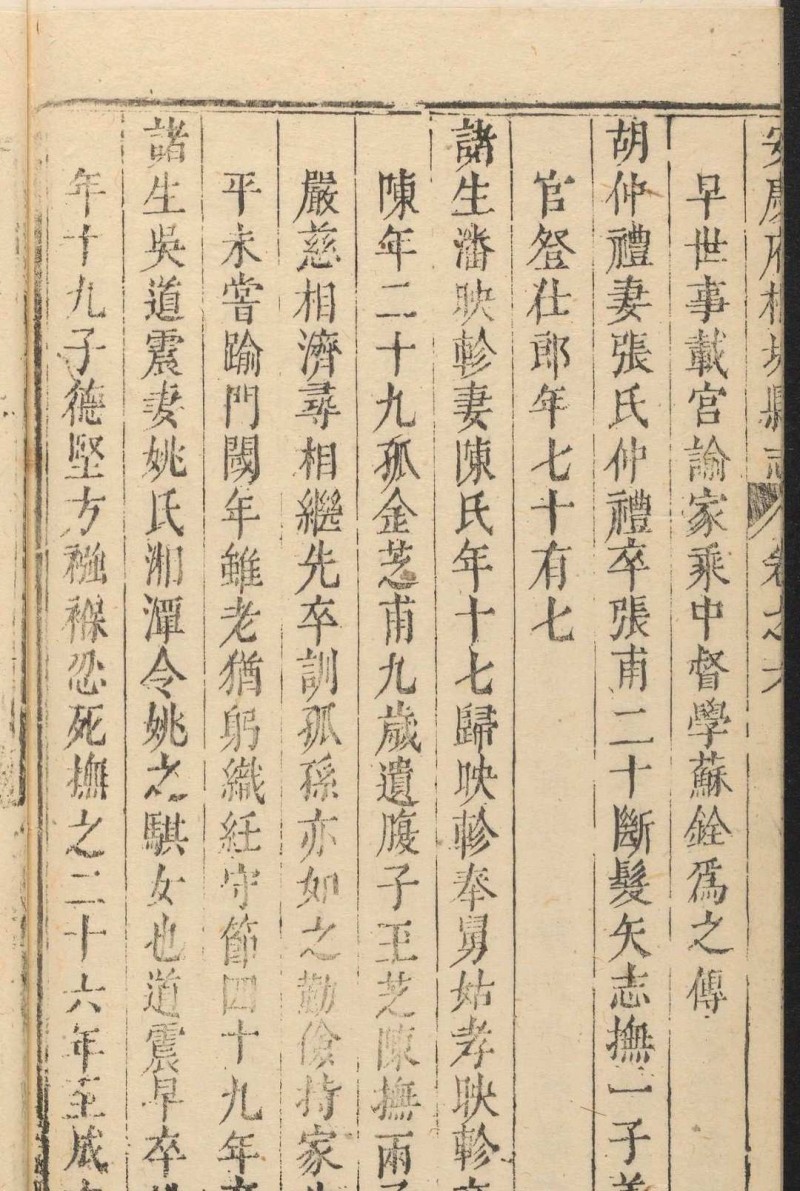 安慶府桐城縣志 卷之六
早世事載宮諭家乘中督學蘇銓爲之傳
胡仲禮妻張氏仲禮卒張甫二十斷髮矢志撫一子
官登仕郎年七十有七
諸生潘映軫妻陳氏年十七歸映軫奉舅姑孝映軫
陳年二十九孤金芝甫九歲遺腹子玉芝陳撫兩
嚴慈相濟尋相繼先卒訓孤孫亦如之勤儉持家
平未嘗踰門閾年雖老猶躬織紝守節四十九年
諸生吳道震妻姚氏湘潭令姚之騏女也道震早卒
年十九子德堅方襁褓忍死撫之二十六年至戚